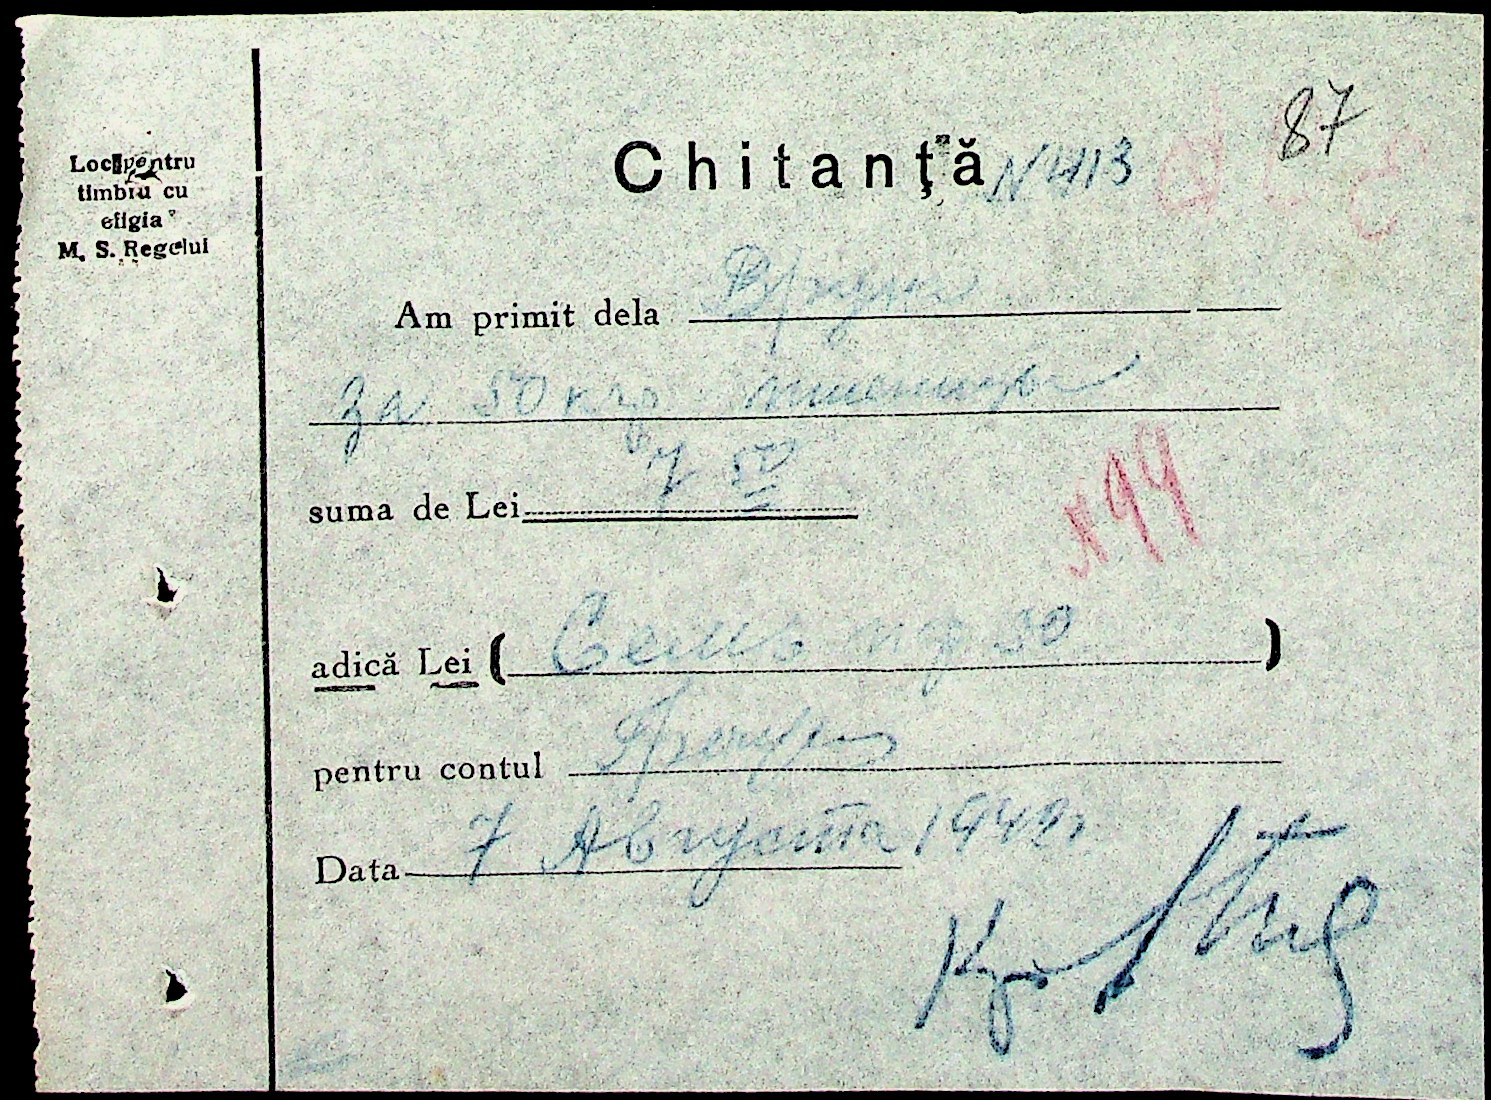 87
Loc pentru
timbru cu
efigia
M. S. Regelui
Chitanţă N 413
Am primit dela
за 50 кгр пшеницы
suma de Lei 7 50
N 94
adică Lei ( Семь м ф 50 )
pentru contul
Data 7 Августа 1942г